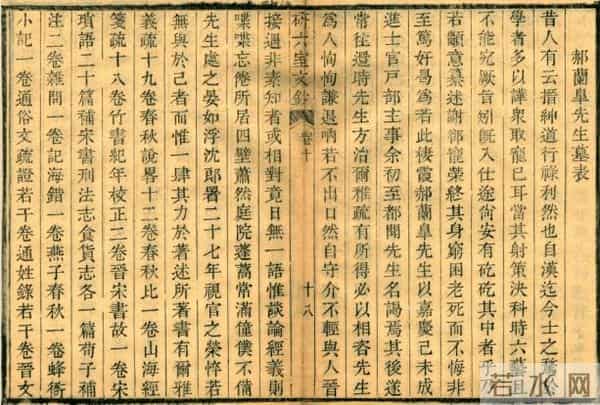 郝蘭臯先生墓表
昔人有云搢紳道行祿利然也自漢迄今士之騖於
學者多以譁衆取寵已耳當其射策決科時六藝且
不能究厥旨矧既入仕途尙安有矻矻其中者乎
若顓意纂述謝卻寵榮終其身窮困老死而不悔非
至篤好曷爲若此棲霞郝蘭臯先生以嘉慶己未成
進士官戸部主事余初至都聞先生名謁焉其後遂
常往還時先生方治爾雅疏有所得必以相咨先生
爲人恂恂謙退吶若不出口然自守介不輕與人晉
研六室文鈔 卷十 十八
接過非素知者或相對竟日無一語惟談論經義則
喋喋忘倦所居四壁蕭然庭院蓬蒿常滿僮僕不備
先生處之晏如浮沈郎署二十七年視官之榮悴若
無與於己者而惟一肆其力於著述所著書有爾雅
義疏十九卷春秋說畧十二卷春秋比一卷山海經
箋疏十八卷竹書紀年校正二卷晉宋書故一卷宋
瑣語二十篇補宋書刑法志食貨志各一篇荀子補
注二卷雜問一卷記海錯一卷燕子春秋一卷蜂衙
小記一卷通俗文疏證若干卷通姓錄若干卷晉文
若水网